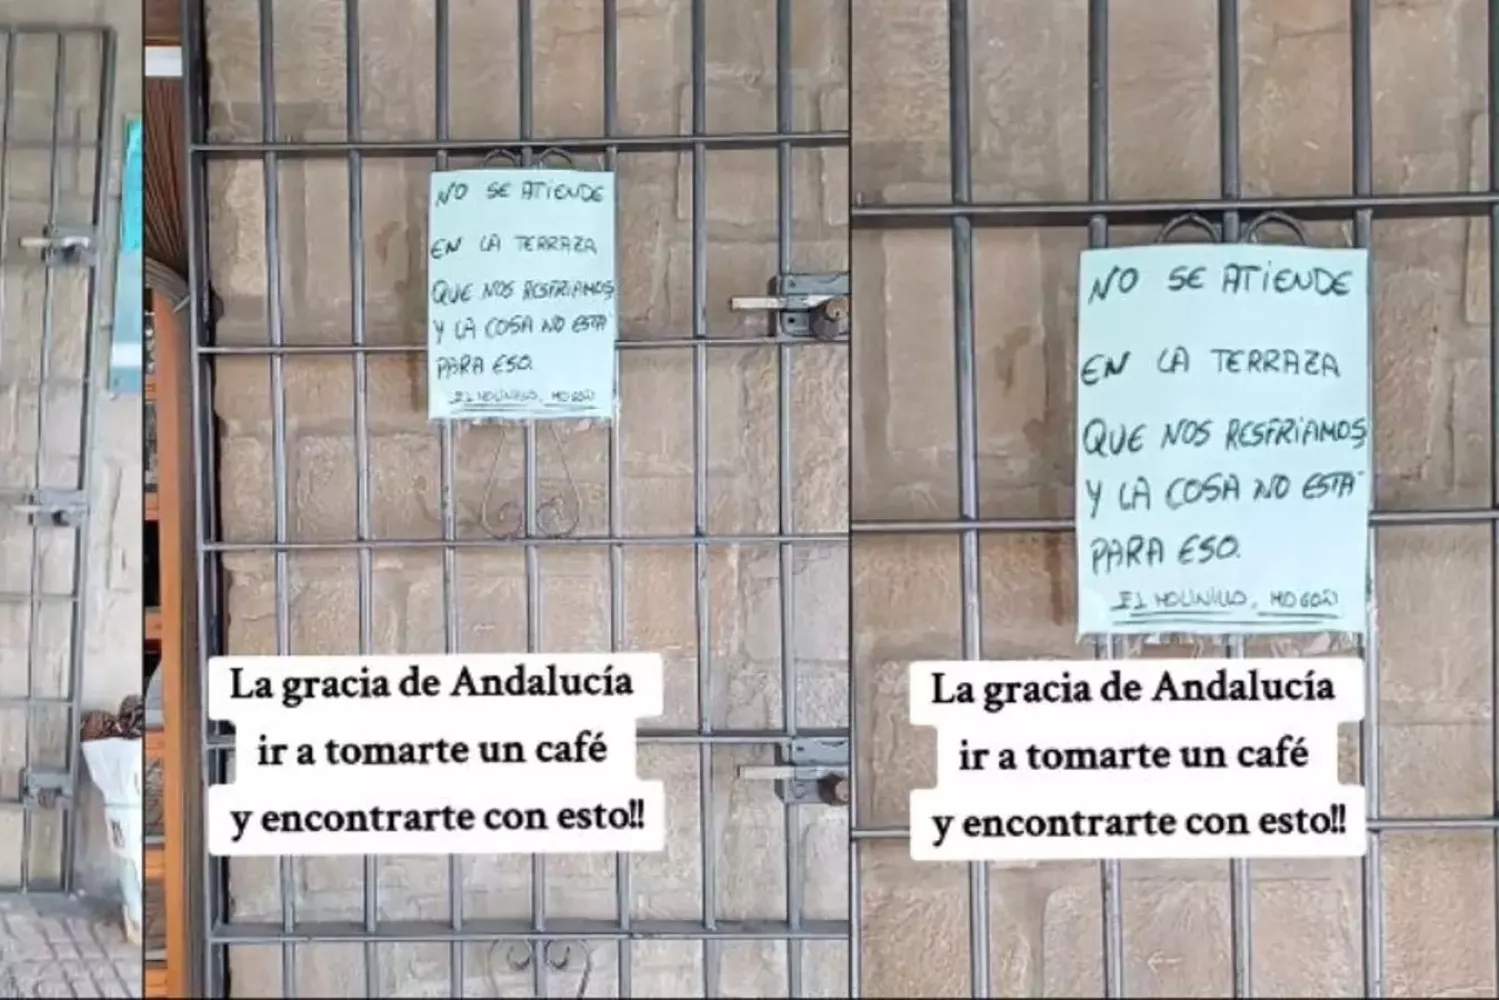 NO SE ATIENDE
EN LA TERRAZA
QUE NOS RESFRIAMOS
Y LA COSA NO ESTÁ
PARA ESO.
EL MOLINILLO, MOGÓN
La gracia de Andalucía
ir a tomarte un café
y encontrarte con esto!!
NO SE ATIENDE
EN LA TERRAZA
QUE NOS RESFRIAMOS
Y LA COSA NO ESTÁ
PARA ESO.
EL MOLINILLO, MOGÓN
La gracia de Andalucía
ir a tomarte un café
y encontrarte con esto!!